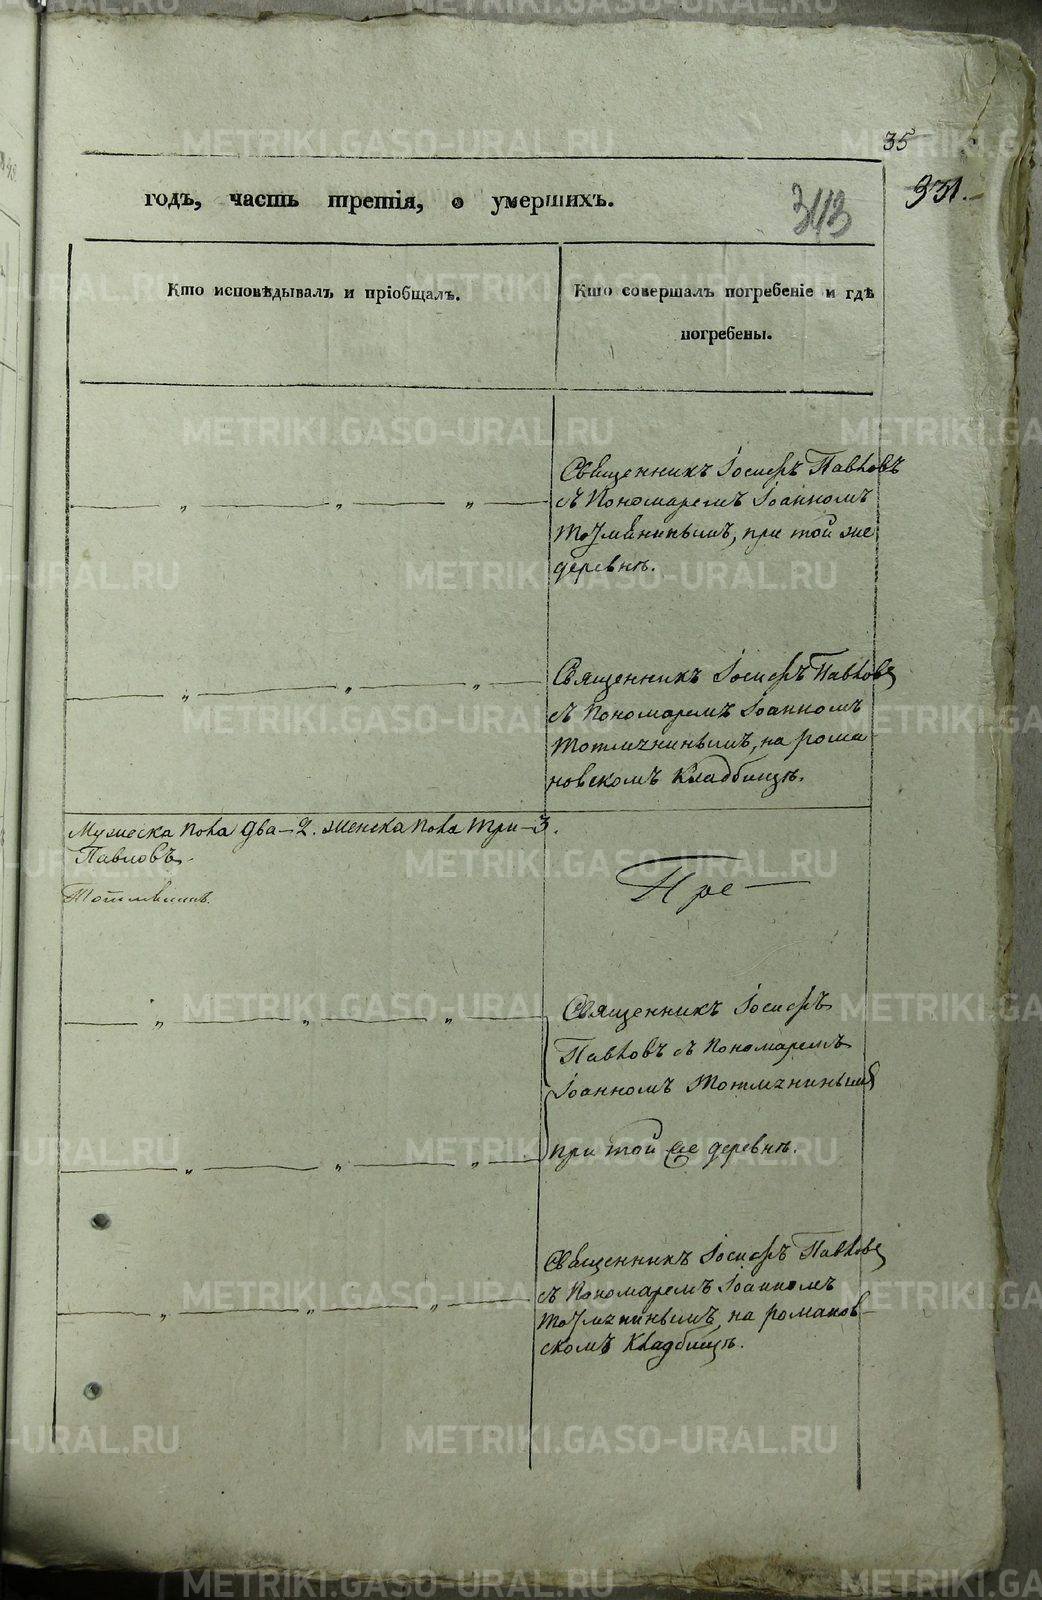 35
931.
343
годъ, часть третія, о умершихъ.
Кто исповѣдывалъ и пріобщалъ.
Кто совершалъ погребеніе и гдѣ
погребены.
Священникъ Іосифъ Павловъ
съ Пономаремъ Іоанномъ
при той же
деревнѣ.
Священникъ Іосифъ Павловъ
съ Пономаремъ Іоанномъ
на рома
новскомъ Кладбищѣ.
Мужеска пола два – 2. женска пола три – 3.
Павловъ.
Пре
Священникъ Іосифъ
Павловъ съ Пономаремъ
Іоанномъ
при той же деревнѣ.
Священникъ Іосифъ Павловъ
съ Пономаремъ Іоанномъ
на романов-
скомъ Кладбищѣ.
METRIKI.GASO-URAL.RU